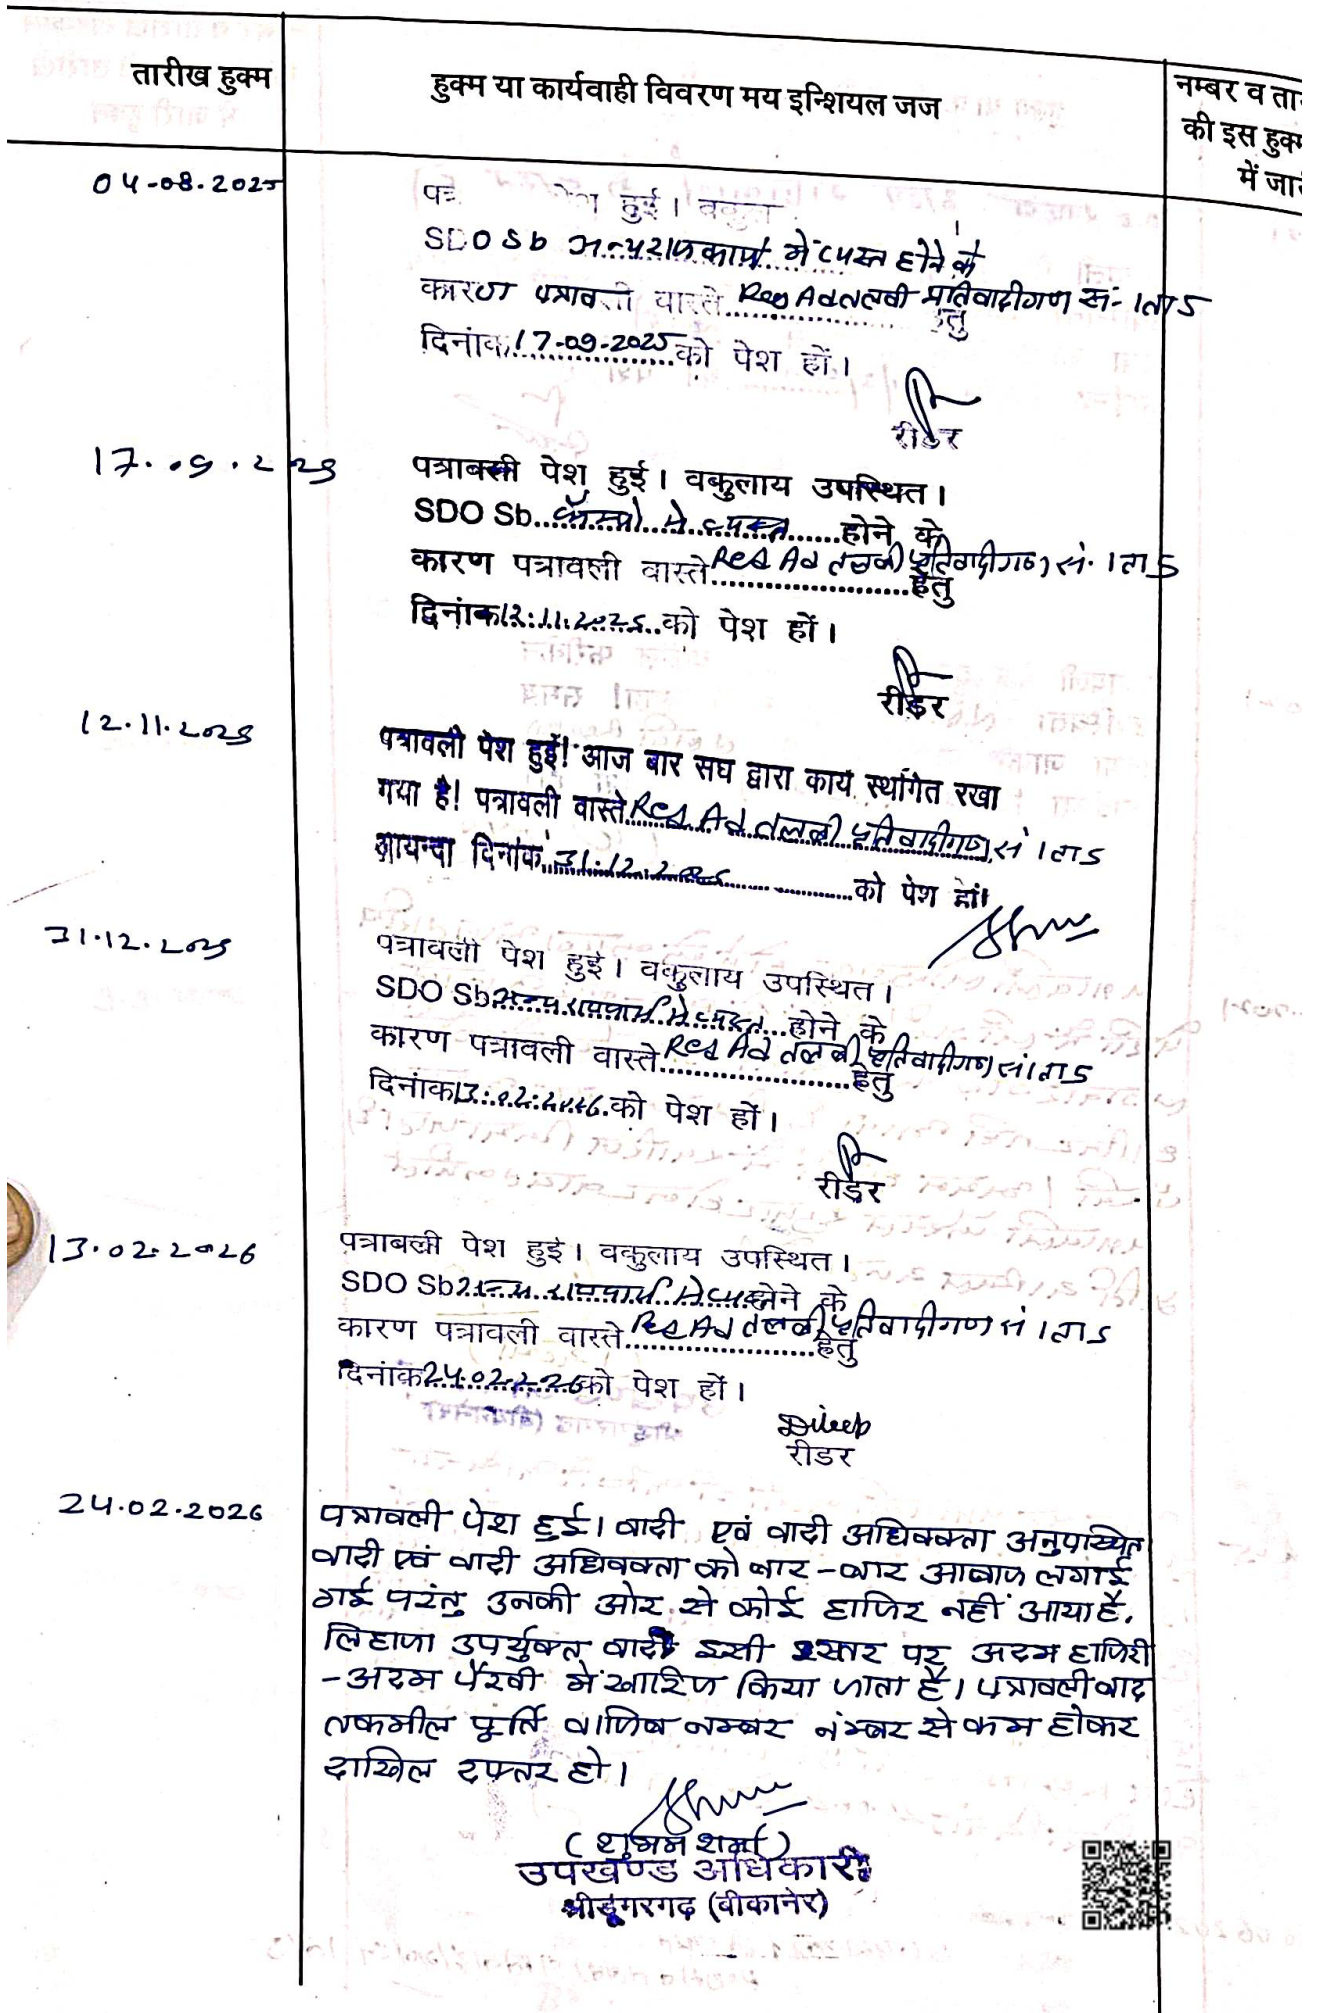 तारीख हुक्म
हुक्म या कार्यवाही विवरण मय इन्शियल जज
नम्बर व ता
की इस हुक्म
में जारी
04-08-2025
हुई। वकुला
SDO Sb अन्य राजकार्य में व्यस्त होने के
कारण पत्रावली वास्ते Reg Ad तलबी प्रतिवादीगण सं- 1 ता 5
हेतु
दिनांक 17-09-2025 को पेश हों।
रीडर
17.09.2025
पत्रावली पेश हुई। वकुलाय उपस्थित।
SDO Sb में व्यस्त होने के
कारण पत्रावली वास्ते Reg Ad तलबी प्रतिवादीगण सं. 1 ता 5
हेतु
दिनांक 12.11.2025 को पेश हों।
रीडर
12.11.2025
पत्रावली पेश हुई! आज बार संघ द्वारा कार्य स्थगित रखा
गया है! पत्रावली वास्ते Reg Ad तलबी प्रतिवादीगण सं 1 ता 5
आयन्दा दिनांक 31.12.2025 को पेश हों!
31.12.2025
पत्रावली पेश हुई। वकुलाय उपस्थित।
SDO Sb अन्य राजकार्य में व्यस्त होने के
कारण पत्रावली वास्ते Reg Ad तलबी प्रतिवादीगण सं 1 ता 5
हेतु
दिनांक 13.02.2026 को पेश हों।
रीडर
13.02.2026
पत्रावली पेश हुई। वकुलाय उपस्थित।
SDO Sb अन्य राजकार्य में व्यस्त होने के
कारण पत्रावली वास्ते Reg Ad तलबी प्रतिवादीगण सं 1 ता 5
हेतु
दिनांक 24.02.2026 को पेश हों।
Dileep
रीडर
24.02.2026
पत्रावली पेश हुई। वादी एवं वादी अधिवक्ता अनुपस्थित
वादी एवं वादी अधिवक्ता को बार-बार आवाज लगाई
गई परंतु उनकी ओर से कोई हाजिर नहीं आया है,
लिहाजा उपर्युक्त वाद इसी स्तर पर अदम हाजिरी
-अदम पैरवी में खारिज किया जाता है। पत्रावली बाद
तकमील पूर्ति वाजिब नम्बर नंम्बर से कम होकर
दाखिल दफ्तर हो।
(शुभम शर्मा)
उपखण्ड अधिकारी
श्रीडूंगरगढ़ (बीकानेर)